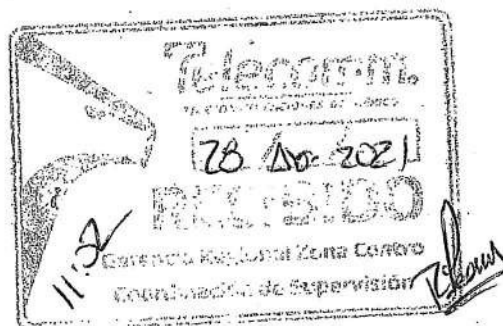 Telecomm.
TELECOMUNICACIONES DE MÉXICO
28 Abr 2021
RECIBIDO
11:52
Gerencia Regional Zona Centro
Coordinación de Supervisión